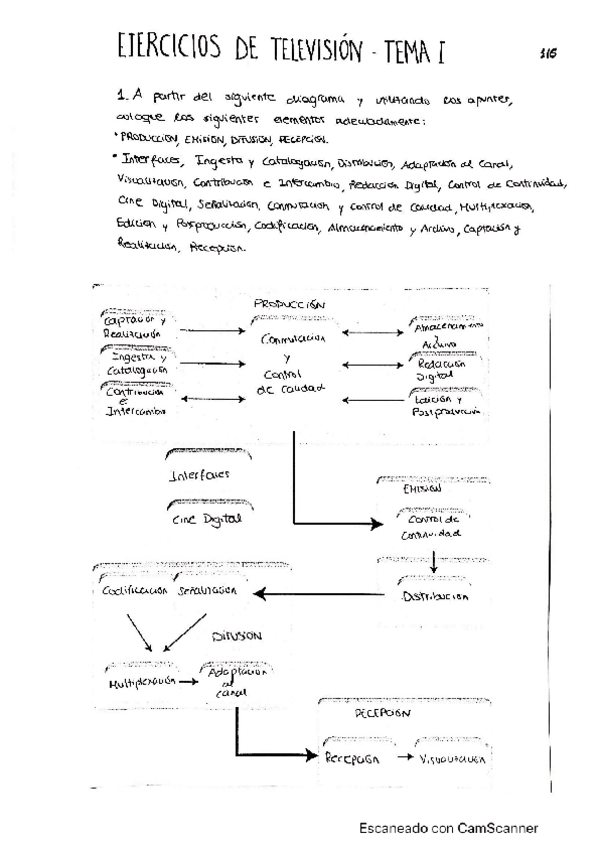 EJERCICIOS DE TELEVISIÓN - TEMA I
1. A partir del siguiente diagrama y utilizando los apuntes,
coloque los siguientes elementos adecuadamente:
• PRODUCCIÓN, EMISIÓN, DIFUSIÓN, RECEPCIÓN.
• Interfaces, Ingesta y Catalogación, Distribución, Adaptación al Canal,
Visualización, Contribución e Intercambio, Redacción Digital, Control de Continuidad,
Cine Digital, Señalización, Conmutación y Control de Calidad, Multiplexación,
Edición y Postproducción, Codificación, Almacenamiento y Archivo, Captación y
Realización, Recepción.
PRODUCCIÓN
Captación y
Realización
Ingesta y
Catalogación
Contribución
e
Intercambio
Conmutación
y
Control
de calidad
Almacenamiento
y
Archivo
Redacción
Digital
Edición y
Postproducción
Interfaces
Cine Digital
EMISIÓN
Control de
Continuidad
Distribución
Codificación
Señalización
DIFUSIÓN
Multiplexación
Adaptación
al
canal
RECEPCIÓN
Recepción
Visualización
Escaneado con CamScanner